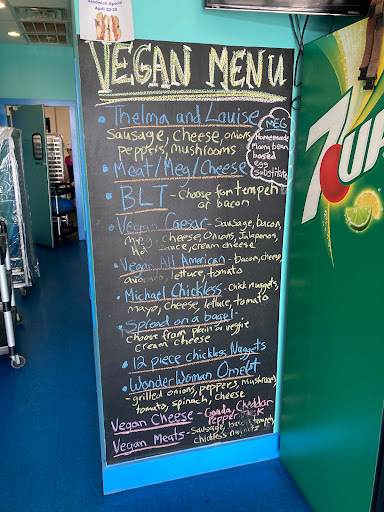 Sandwich Special
April 22-28
VEGAN MENU
• Thelma and Louise
Sausage, cheese, onions,
peppers, mushrooms
MEG
Homemade
Moong bean
based
egg
substitute
• Meat/Meg/Cheese
• BLT - choose from tempeh
or bacon
• Vegan Caesar - Sausage, bacon,
meg, cheese, Onions, Jalapenos,
Hot Sauce, cream cheese
• Vegan All American - bacon, cheese,
avocado, lettuce, tomato
• Michael Chickless - chick nuggets,
mayo, cheese, lettuce, tomato
• Spread on a bagel -
choose from plain or veggie
cream cheese
• 12 piece chickless Nuggets
• WonderWoman Omelet
- grilled onions, peppers, mushroom,
tomato, spinach, cheese
Vegan Cheese - Gouda, Cheddar
Pepper Jack
Vegan Meats - Sausage, bacon, tempeh,
chickless nuggets
7up